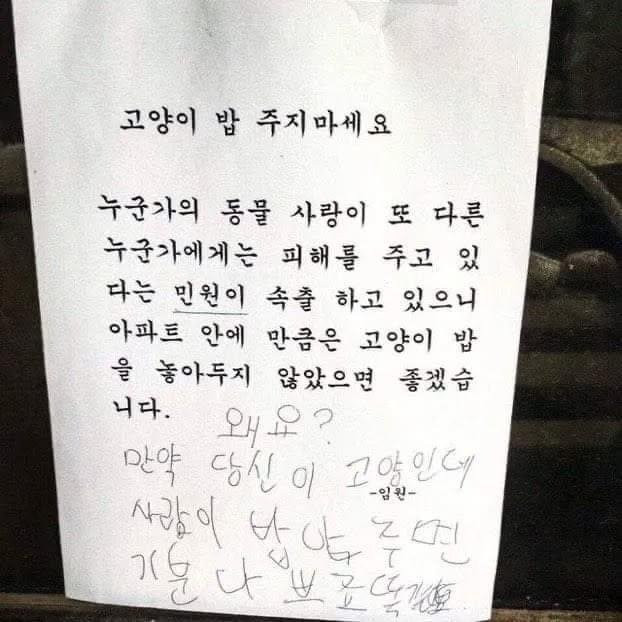 고양이 밥 주지마세요
누군가의 동물 사랑이 또 다른
누군가에게는 피해를 주고 있
다는 민원이 속출 하고 있으니
아파트 안에 만큼은 고양이 밥
을 놓아두지 않았으면 좋겠습
니다.
왜요?
만약 당신이 고양인데
-임원-
사람이 밥안 주면
기분 나쁘고 똑같